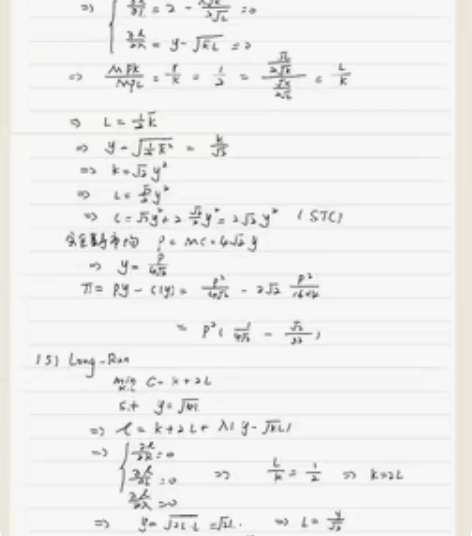 ⇒ { ∂ℓ/∂L = 2 - λ√K/2√L = 0
∂ℓ/∂λ = y - √KL = 0
⇒ MPK/MPL = r/K = 1/2 = (√L/2√K)/(√K/2√L) = L/K
⇒ L = 1/2 K
⇒ y = √(1/2 K²) = K/√2
⇒ K = √2 y²
⇒ L = √2/2 y²
⇒ C = √2 y² + 2 √2/2 y² = 2√2 y² (STC)
P = MC = 4√2 y
⇒ y = P/4√2
π = Py - C(y) = P²/4√2 - 2√2 P²/16×2
= P² ( 1/4√2 - √2/32 )
(5) Long-Run
min K,L C = K + 2L
s.t y = √KL
⇒ ℓ = K + 2L + λ( y - √KL )
⇒ { ∂ℓ/∂K = 0
∂ℓ/∂L = 0 ⇒ L/K = 1/2 ⇒ K = 2L
∂ℓ/∂λ = 0
⇒ y = √2L·L = √2L. ⇒ L = y/√2